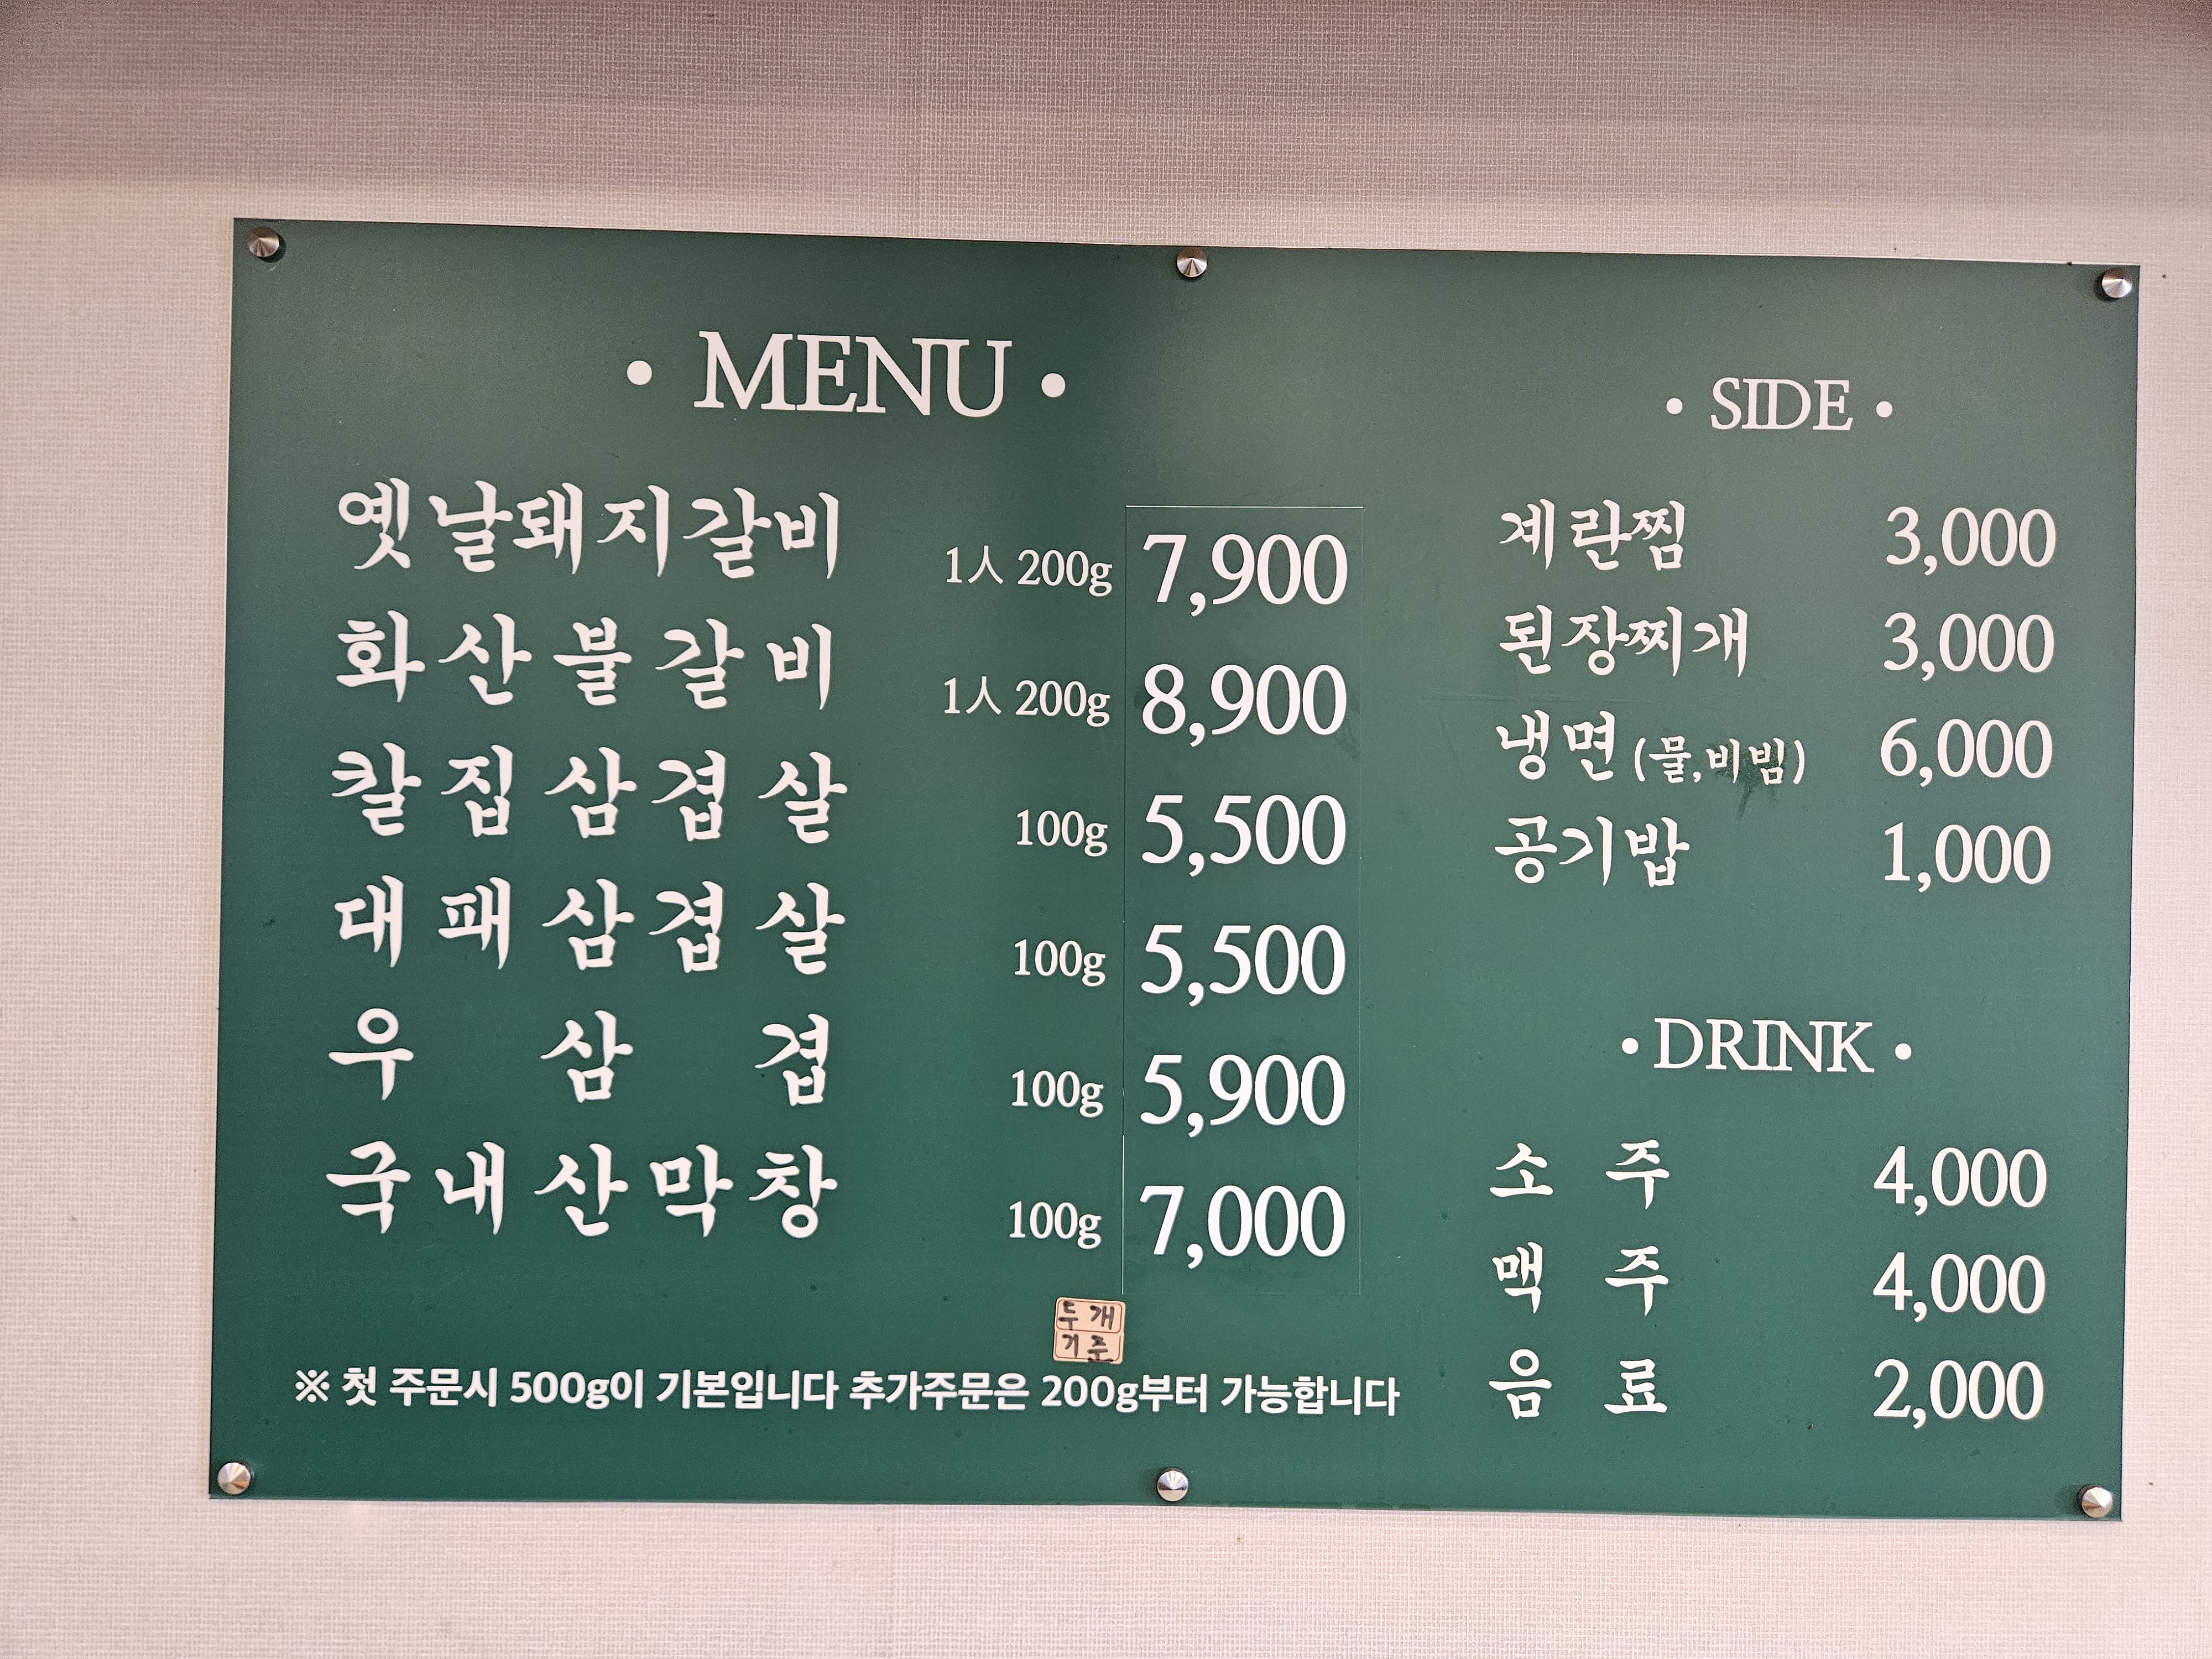 • MENU •
옛날돼지갈비 1人 200g 7,900
화산불갈비 1人 200g 8,900
칼집삼겹살 100g 5,500
대패삼겹살 100g 5,500
우삼겹 100g 5,900
국내산막창 100g 7,000
두개
기준
※ 첫 주문시 500g이 기본입니다 추가주문은 200g부터 가능합니다
• SIDE •
계란찜 3,000
된장찌개 3,000
냉면 (물,비빔) 6,000
공기밥 1,000
• DRINK •
소주 4,000
맥주 4,000
음료 2,000